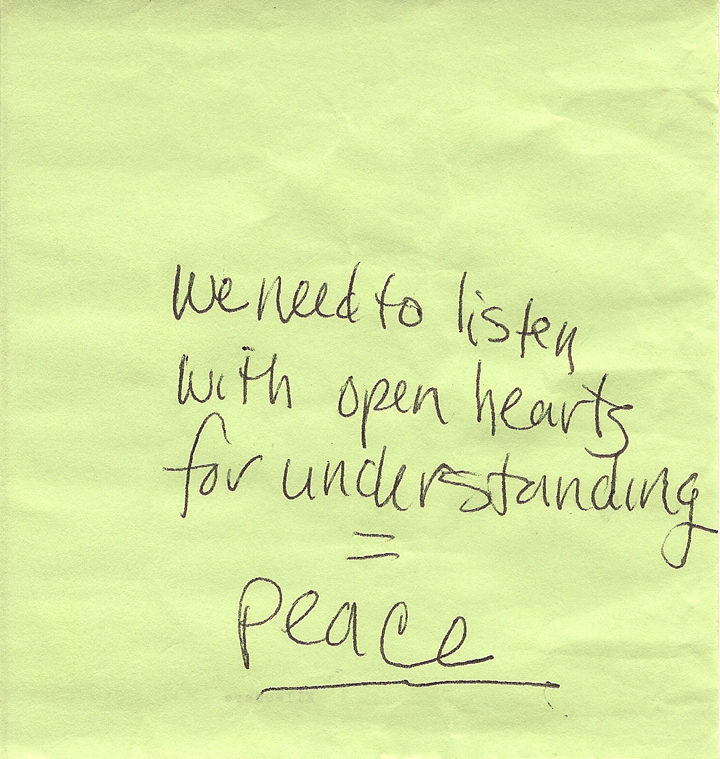 We need to listen
with open hearts
for understanding
=
peace